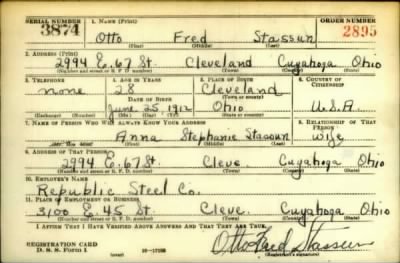 SERIAL NUMBER 1. NAME (Print) ORDER NUMBER
3874 Otto Fred Stassun 2895
(First) (Middle) (Last)
2. ADDRESS (Print)
2994 E. 67 St. Cleveland Cuyahoga Ohio
(Number and street or R. F. D. number) (Town) (County) (State)
3. TELEPHONE 4. AGE IN YEARS 5. PLACE OF BIRTH 6. COUNTRY OF CITIZENSHIP
none 28 Cleveland
DATE OF BIRTH (Town or county)
June 25, 1912 Ohio U.S.A.
(Exchange) (Number) (Mo.) (Day) (Yr.) (State or country)
7. NAME OF PERSON WHO WILL ALWAYS KNOW YOUR ADDRESS 8. RELATIONSHIP OF THAT PERSON
Anna Stephanie Stassun wife
(First) (Middle) (Last)
9. ADDRESS OF THAT PERSON
2994 E. 67 St. Cleve. Cuyahoga Ohio
(Number and street or R. F. D. number) (Town) (County) (State)
10. EMPLOYER'S NAME
Republic Steel Co.
11. PLACE OF EMPLOYMENT OR BUSINESS
3100 E. 45 St. Cleve. Cuyahoga Ohio
(Number and street or R. F. D. number) (Town) (County) (State)
I AFFIRM THAT I HAVE VERIFIED ABOVE ANSWERS AND THAT THEY ARE TRUE.
REGISTRATION CARD Otto Fred Stassun
D. S. S. Form 1 (Registrant's signature)